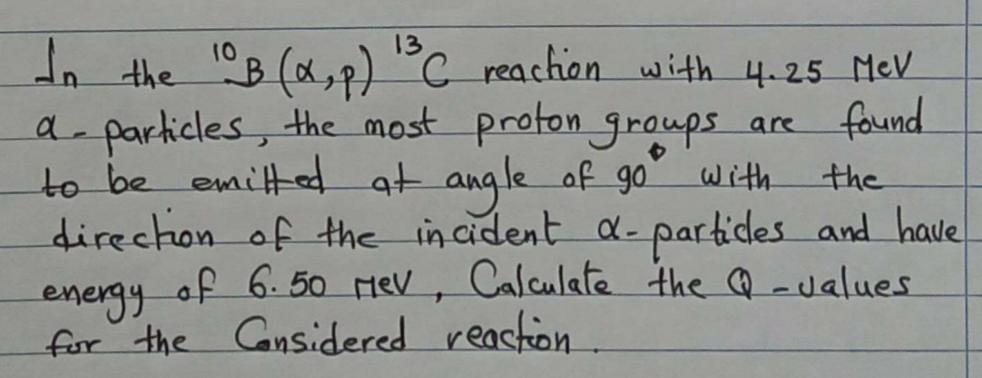 In the ¹⁰B (α,p) ¹³C reaction with 4.25 MeV
α-particles, the most proton groups are found
to be emitted at angle of 90° with the
direction of the incident α-particles and have
energy of 6.50 MeV, Calculate the Q-values
for the Considered reaction.